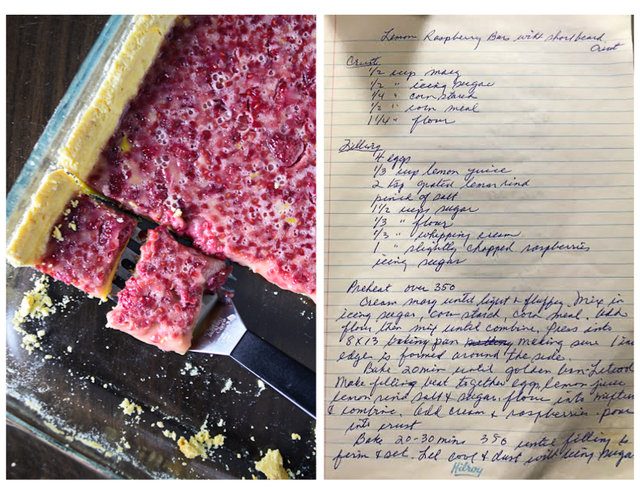 Lemon Raspberry Bars with shortbread
Crust
Crust
1/2 cup marg
1/2 " icing sugar
1/4 " corn starch
1/2 " corn meal
1 1/4 " flour
Filling
4 eggs
1/3 cup lemon juice
2 tsp grated lemon rind
pinch of salt
1 1/2 cups sugar
1/3 " flour
2/3 " whipping cream
1 " slightly chopped raspberries
icing sugar
Preheat oven 350
Cream marg until light & fluffy. Mix in
icing sugar, corn starch, corn meal. Add
flour, then mix until combine. Press into
8X13 baking pan making sure 1 in
edges is formed around the side.
Bake 20 min until golden brn. Let cool
Make filling beat together eggs, lemon juice
lemon rind salt & sugar. flour into
& combine. Add cream & raspberries. pour
into crust
Bake 20-30 mins 350 until filling is
firm & set. Let cool & dust with icing sugar
Hilroy